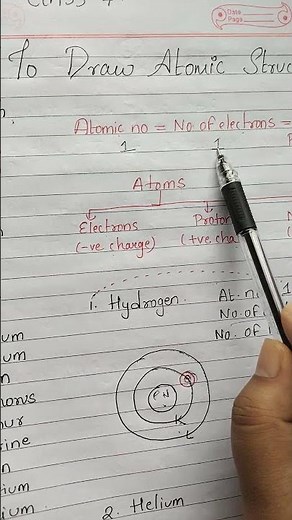 Class
Date
Page
To Draw Atomic Struc
Atomic no = No of electrons =
1 1
Atoms
Electrons Proton
(-ve charge) (+ve cha
1. Hydrogen. At. n. 1
No. of
No. of
um
um
n
horus
ur
ine
n
ium
ium
P N
e
K
L
2. Helium